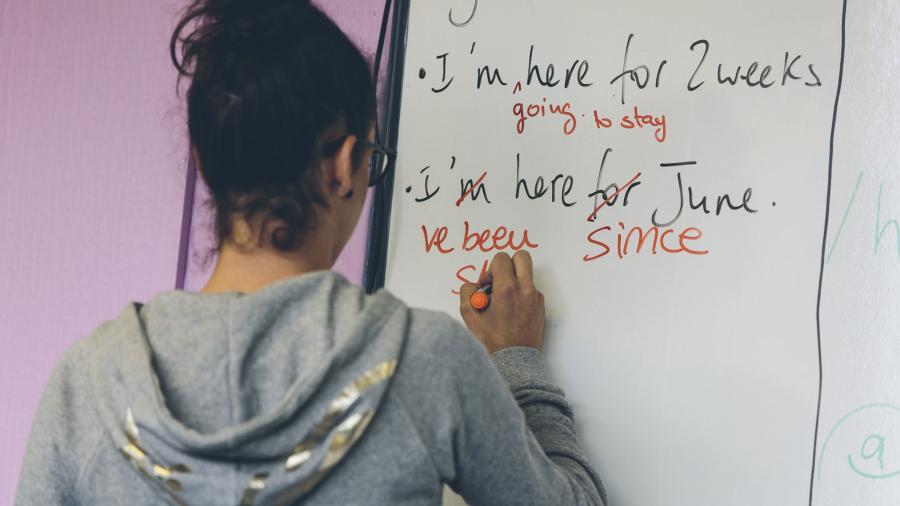 • I'm ^ here for 2 weeks
going to stay
• I'm here for June.
've been since